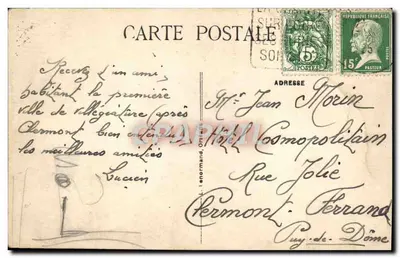 CARTE POSTALE
RÉPUBLIQUE FRANÇAISE
15
PASTEUR
5c
POSTES
ADRESSE
Recevez d'un ami,
habitant la première
ville de villégiature après
Clermont bien entendu
les meilleures amitiés
Lucien
Mr Jean Morin
Hôtel Cosmopolitain
Rue Jolie
Clermont-Ferrand
Puy-de-Dôme